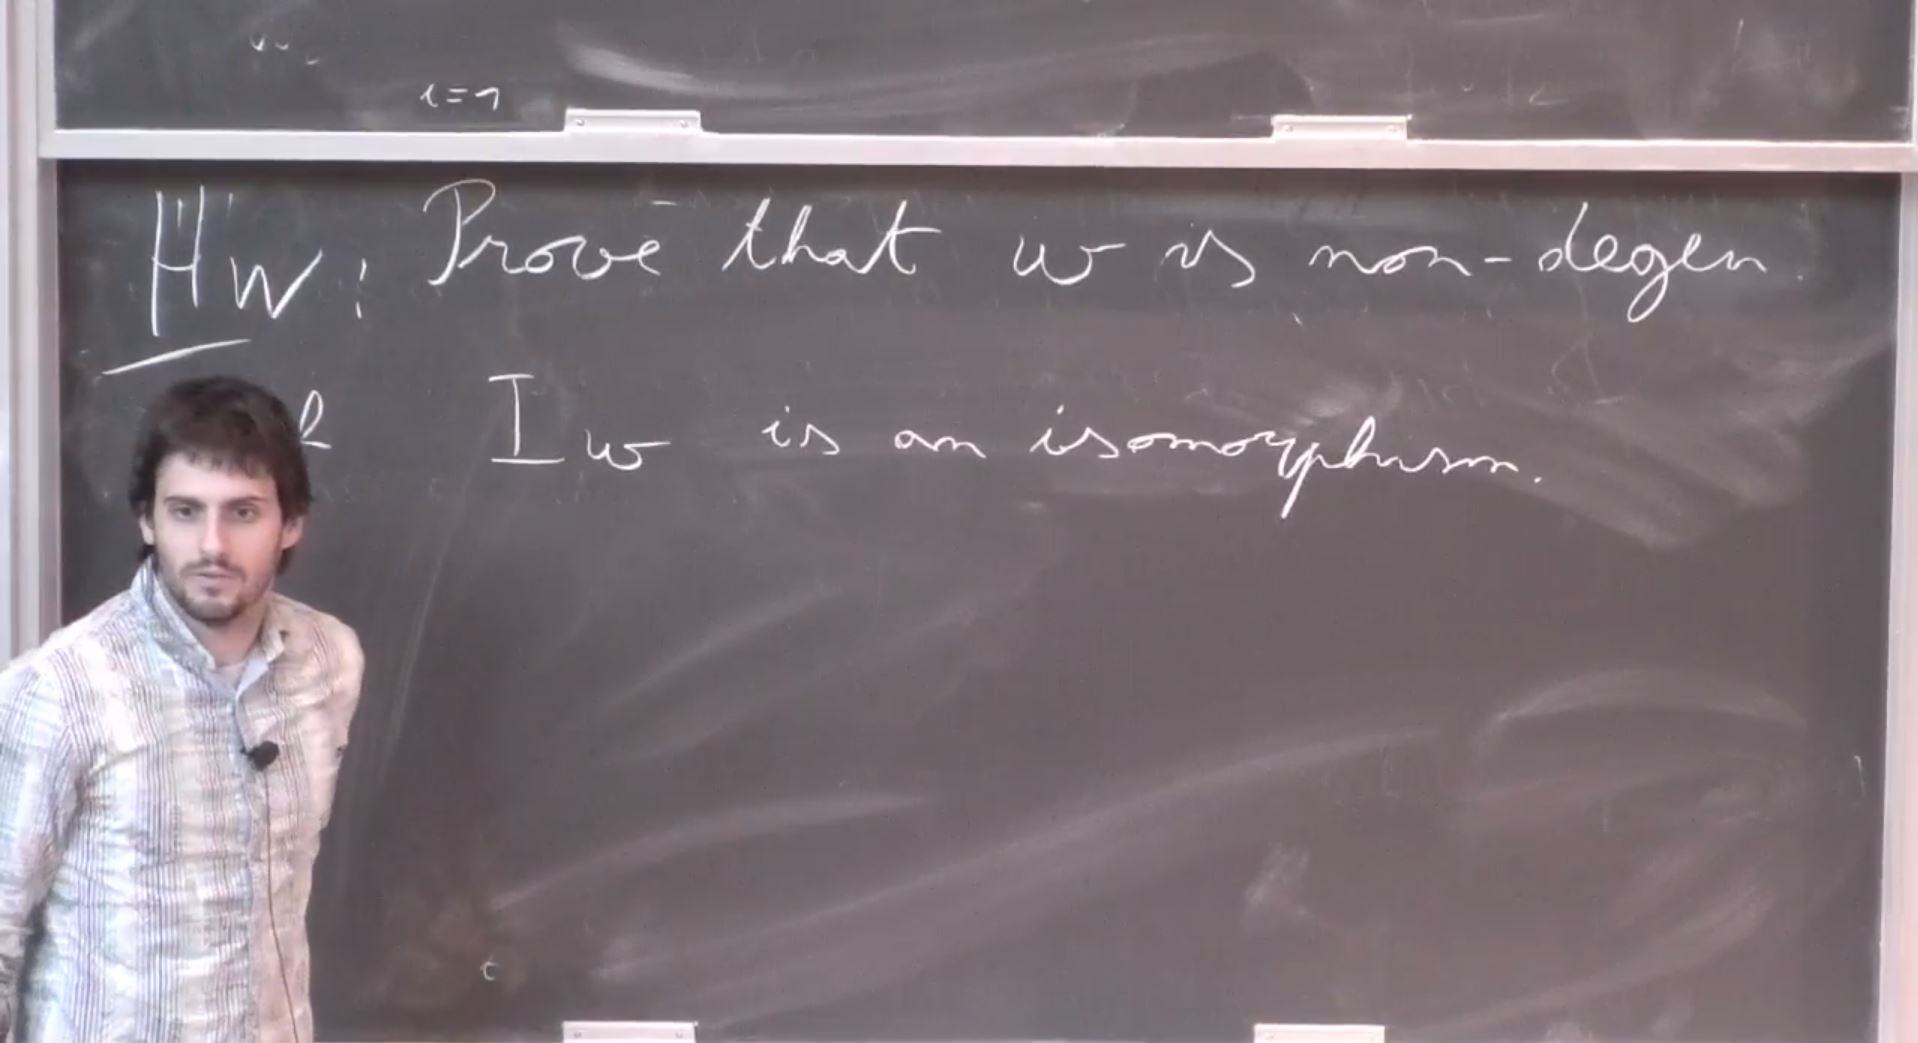 i=1
HW: Prove that w is non-degen.
& I w is an isomorphism.